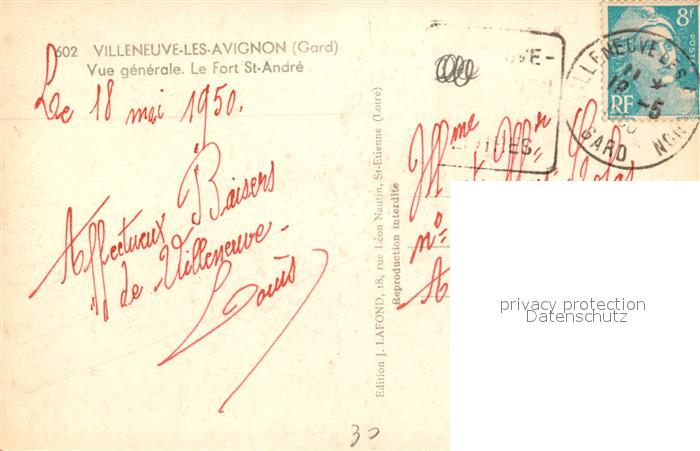 602 VILLENEUVE-LES-AVIGNON (Gard)
Vue générale. Le Fort St-André
Le 18 mai 1950.
Affectueux Baisers
de Villeneuve-
Louis
Edition J. LAFOND, 18, rue Léon Nautin, St-Etienne (Loire)
Reproduction interdite
8F
POSTES
RF
VILLENEUVE LES
18 -5
GARD
Mme
nº
A
privacy protection
Datenschutz
30